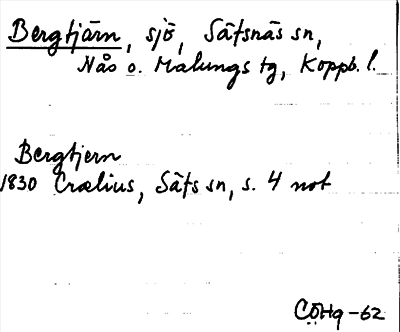 Bergtjärn, sjö, Säfsnäs sn,
Nås o. Malungs tg, Koppb. l.
Bergtjern
1830 Crælius, Säfs sn, s. 4 not
CÖHg -62